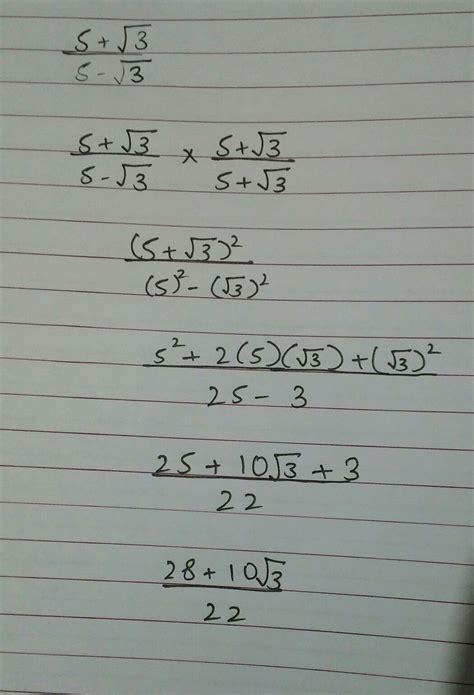 5+√3
5-√3
5+√3 × 5+√3
5-√3 5+√3
(5+√3)²
(5)²-(√3)²
5²+2(5)(√3)+(√3)²
25-3
25+10√3+3
22
28+10√3
22